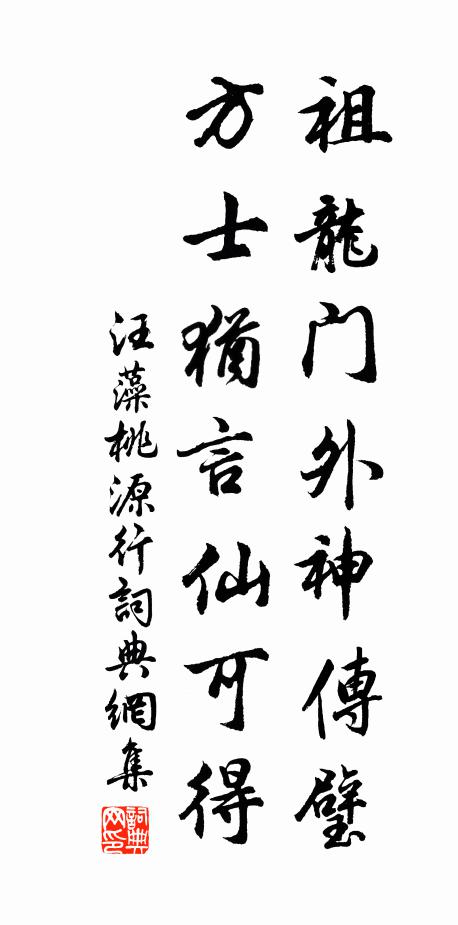 祖龍门外神傳璧
方士猶言仙可得
汪藻桃源行詞典網集
詞典网印